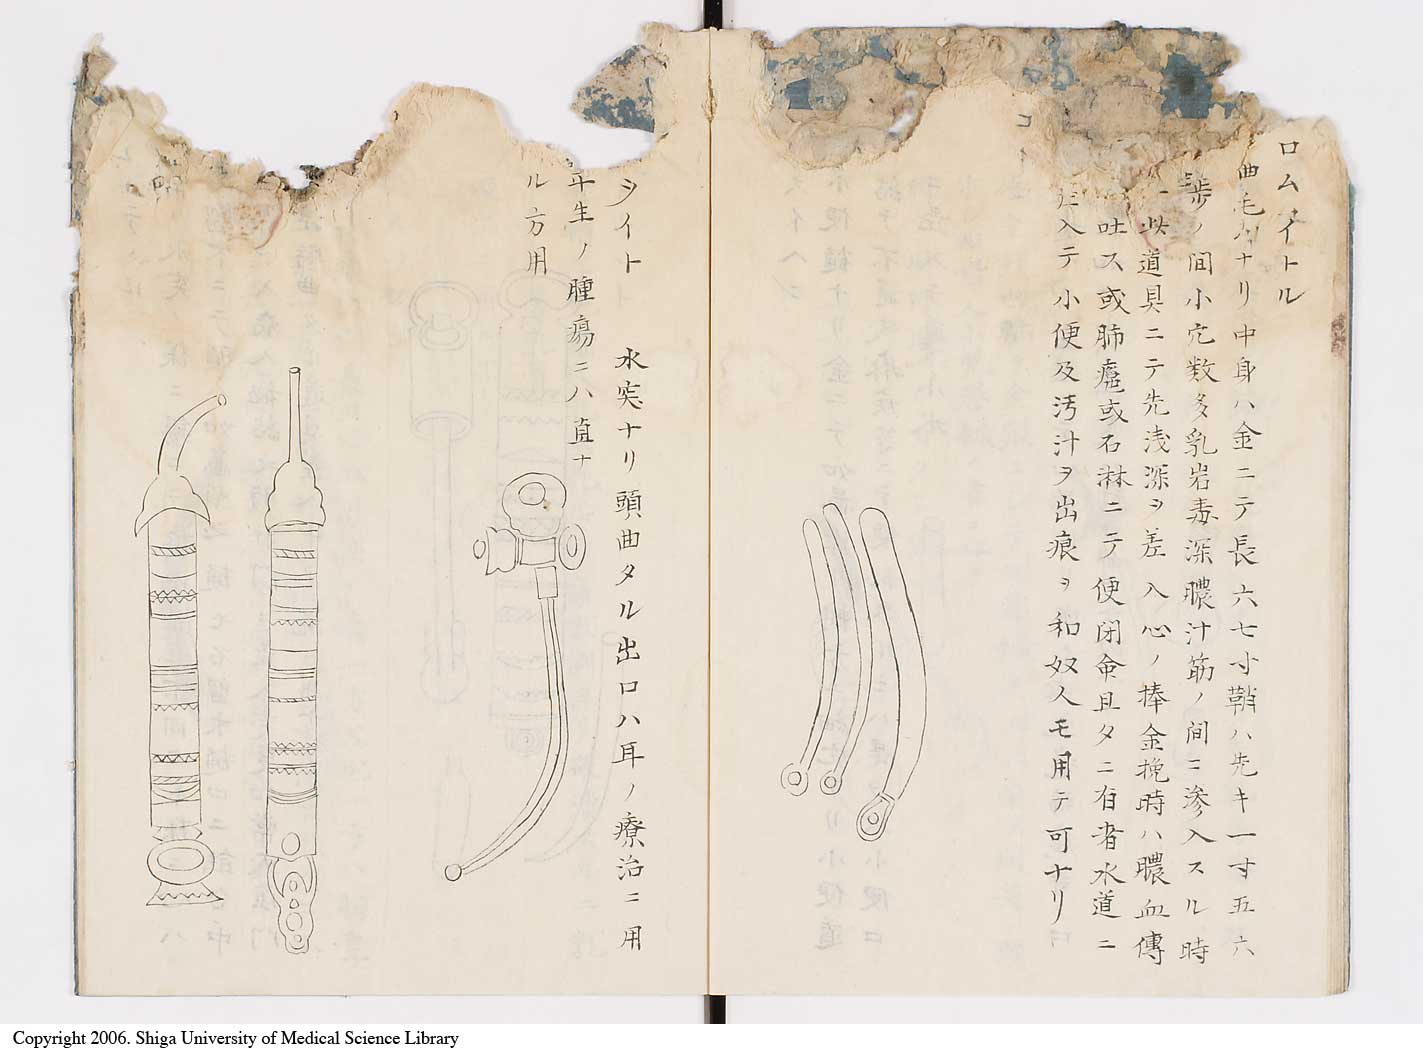 ロムイトル
曲毛ノナリ中身ハ金ニテ長六七寸鞘ハ先キ一寸五六
歩ノ間小穴数多乳岩毒深膿汁筋ノ間ニ滲入スル時
此道具ニテ先浅深ヲ差入心ノ捧金挽時ハ膿血傳
吐ス或肺癰或石淋ニテ便閉命且タニ有者水道ニ
入テ小便及汚汁ヲ出痕ヲ和奴人モ用テ可ナリ
ヲイト 水突ナリ頭曲タル出口ハ耳ノ療治ニ用
年生ノ腫瘍ニハ直ナ
ル方用
Copyright 2006. Shiga University of Medical Science Library